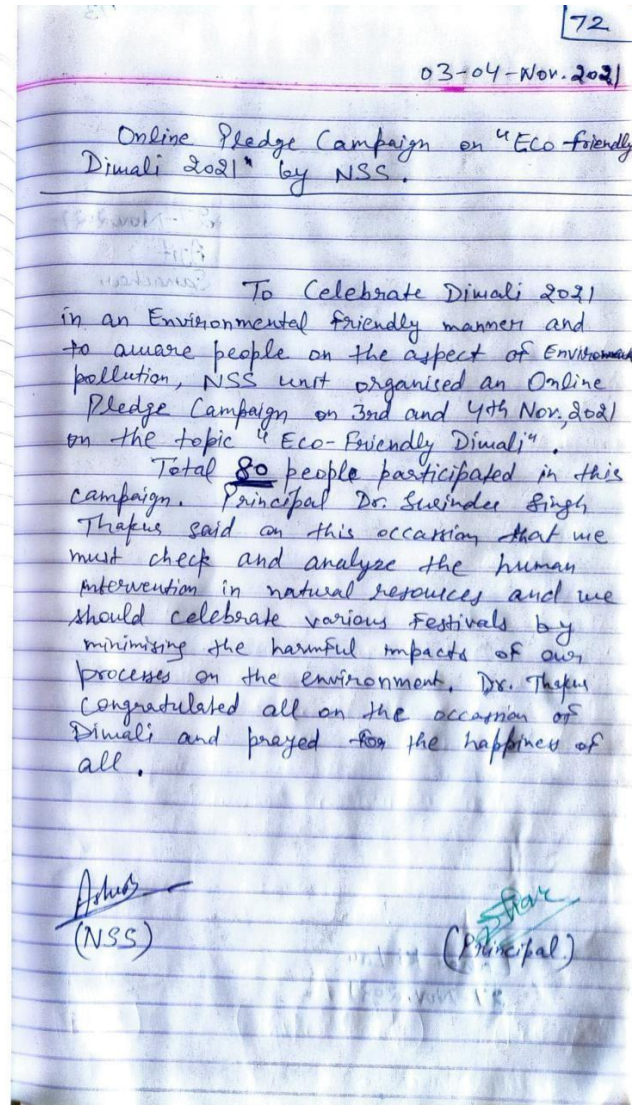 72
03-04-Nov. 2021
Online Pledge Campaign on "Eco friendly
Diwali 2021" by NSS.
To Celebrate Diwali 2021
in an Environmental friendly manner and
to aware people on the aspect of Environment
pollution, NSS unit organised an Online
Pledge Campaign on 3rd and 4th Nov, 2021
on the topic "Eco-Friendly Diwali".
Total 80 people participated in this
campaign. Principal Dr. Surinder Singh
Thakur said on this occassion that we
must check and analyze the human
intervention in natural resources and we
should celebrate various Festivals by
minimising the harmful impacts of our
processes on the environment. Dr. Thakur
Congratulated all on the occassion of
Diwali and prayed for the happiness of
all.
(NSS)
(Principal)